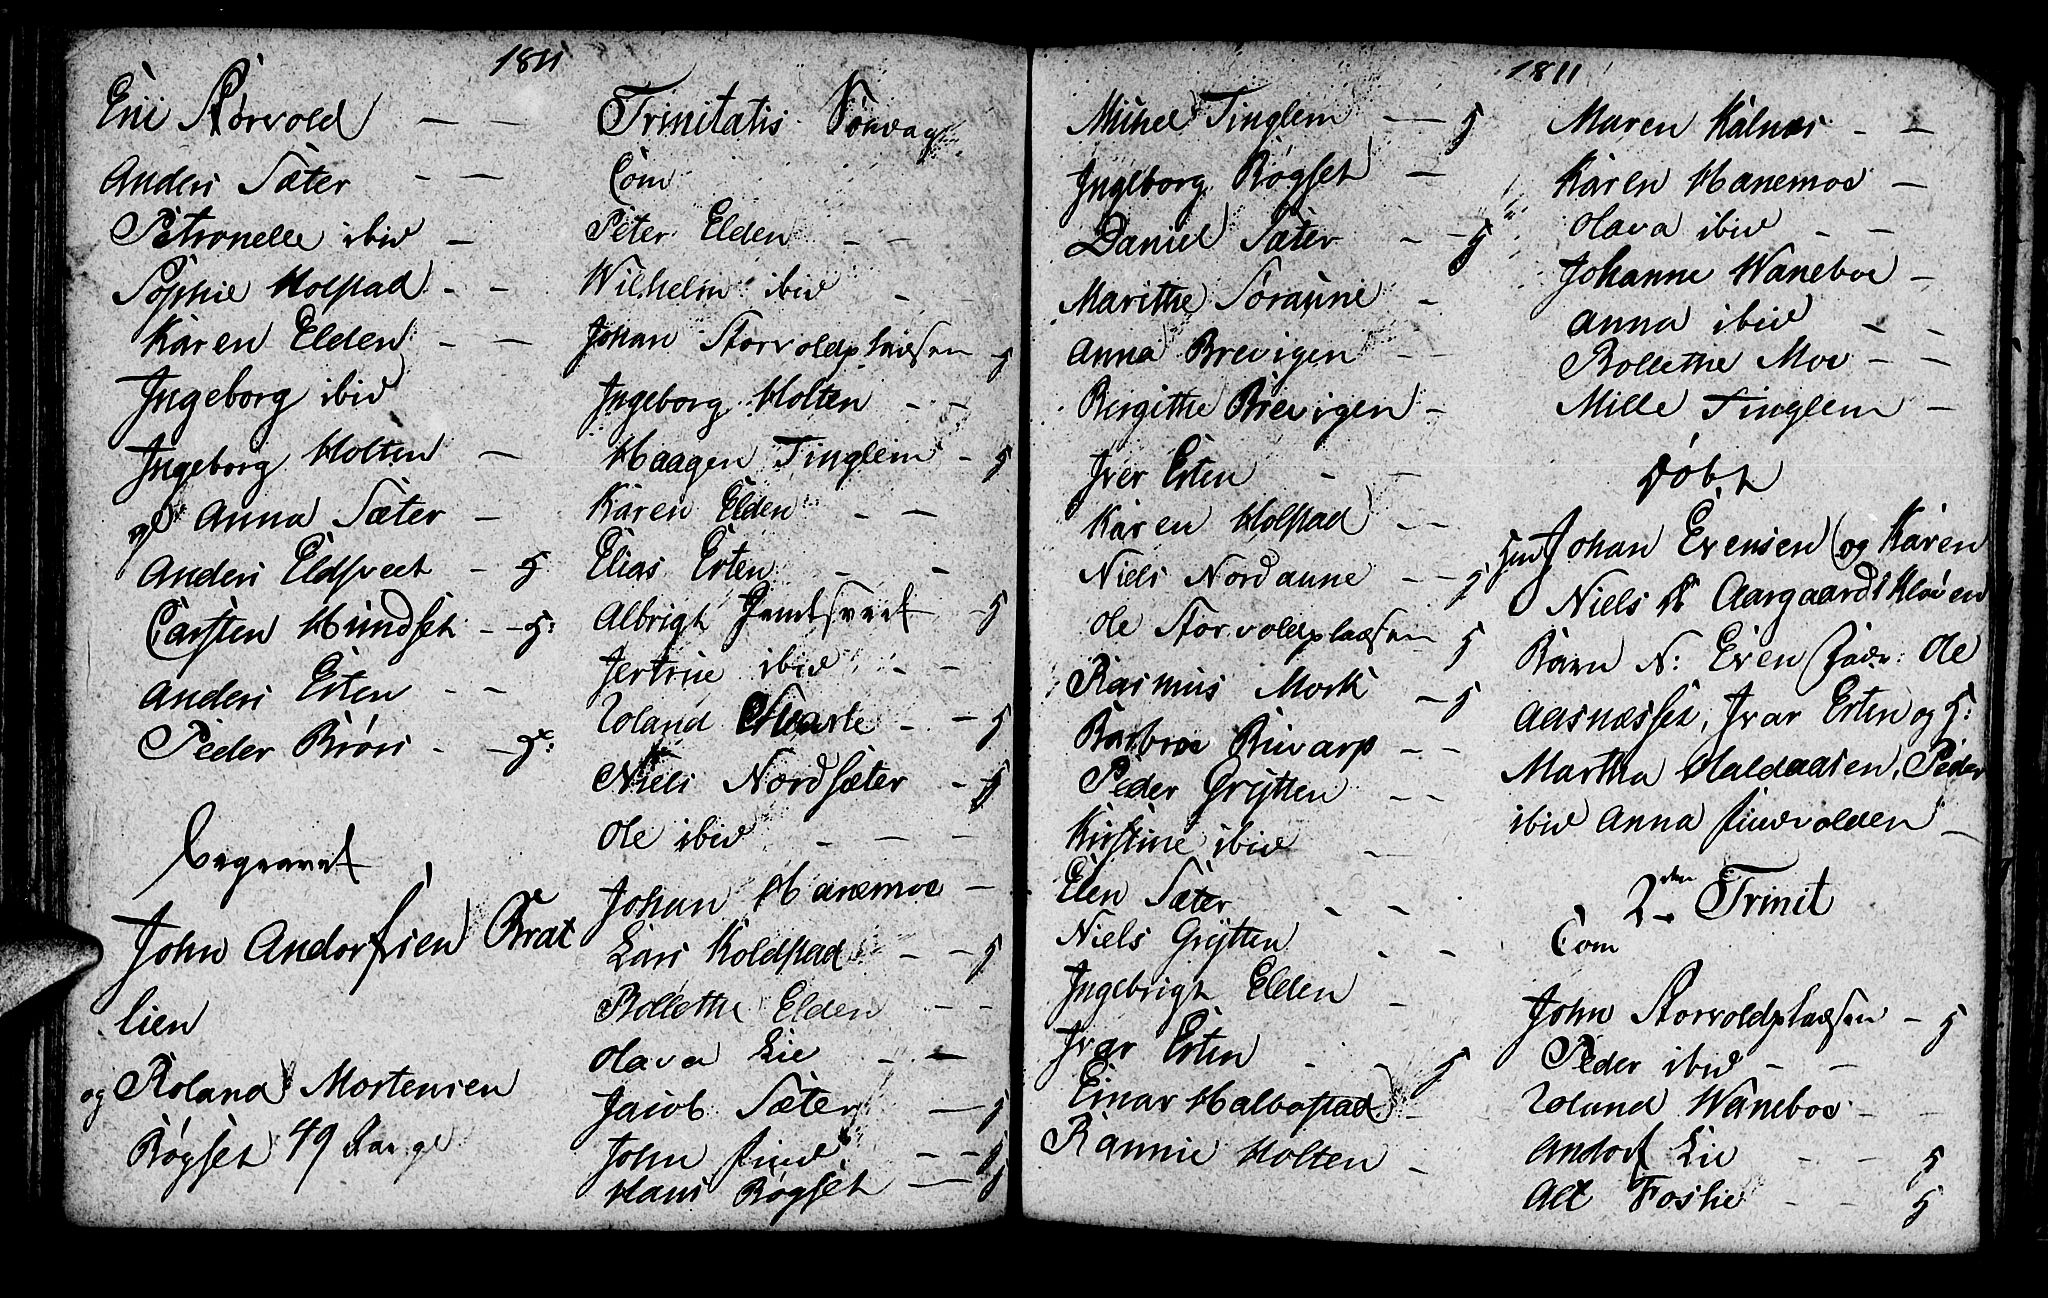 1811
Eric Storvold - -
Anders Sæter - -
Petronelle ibid -
Sophie Holstad - -
Karen Elden - -
Ingeborg ibid
Ingeborg Holten -
og Anna Sæter -
Anders Eldsveet - 5
Carsten Hundset - - 5:
Anders Erten - -
Peder Brørs - - 5:
begravet
John Andorfsen Brat
lien
og Roland Mortensen
Røgset 49
Trinitatis Søndag
Com
Peter Elden - -
Wilhelm ibid - -
Johan Storvoldpladsen 5
Ingeborg Holten - -
Haagen Tinglem - 5
Karen Elden - -
Elias Erten - -
Albrigt Jemtsveet - 5
Jertrue ibid - -
Roland - - 5
Niels Nordsæter - 5
Ole ibid - -
Johan Hanemoe -
Lars Koldstad - - 5
Bollethe Elden - -
Olava Lie - -
Jacob Sæter - 5
John - - 5
Hans Røgset - 5
1811
Michel Tinglem - - 5
Ingeborg Røgset -
Daniel Sæter - - 5
Marithe Søraune -
Anna Brevigen - -
Birgithe Brevigen -
Iver Erten - -
Karen Holstad - -
Niels Nordaune - - 5
Ole Storvoldpladsen 5
Rasmus Mork - 5
Barbroe - -
Peder Grytten - -
Kirstine ibid -
Elen Sæter - -
Niels Grytten - -
Ingebrigt Elden -
Ivar Erten - - 5
Einar Halbostad -
Rannie Holten -
Maren Kalnes - -
Karen Hanemoe -
Olava ibid - -
Johanne Waneboe -
Anna ibid - -
Bollethe Moe - -
Mille Tinglem -
Døbt
Johan Evensen og Karen
Niels Aargaards
Barn N: Even Fadr: Ole
Aasnæsset, Ivar Erten og H:
Martha Haldaasen, Peder
ibid Anna Findvolden -
2den Trinit
Com
John Storvoldpladsen - 5
Peder ibid - -
Roland Waneboe - -
Andorf Lie - - 5
Alt Foslie - - 5